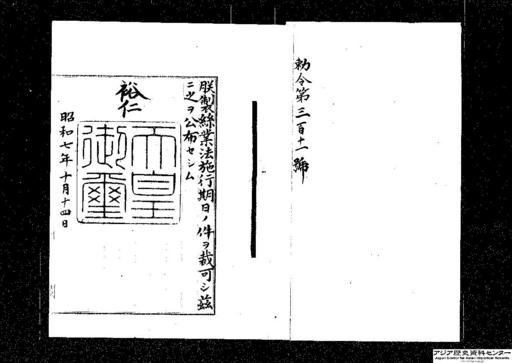 勅令第三百十一號
朕製絲業法施行期日ノ件ヲ裁可シ茲
ニ之ヲ公布セシム
裕仁
天皇
御璽
昭和七年十月十四日
アジア歴史資料センター
Japan Center for Asian Historical Records